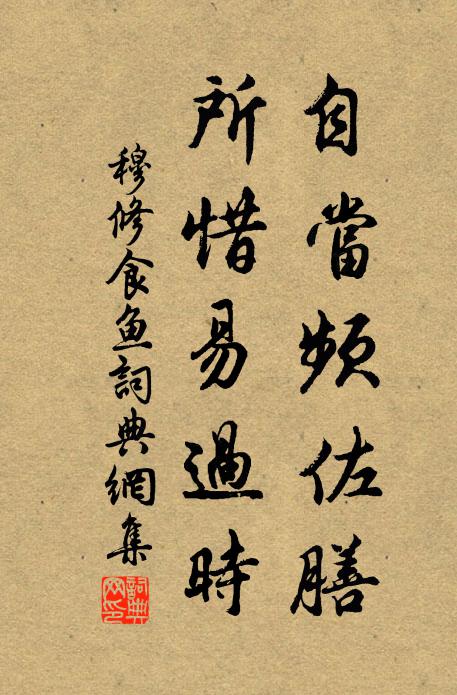 自當頻佐膳
所惜易過時
穆修食魚詞典網集
詞典
网印